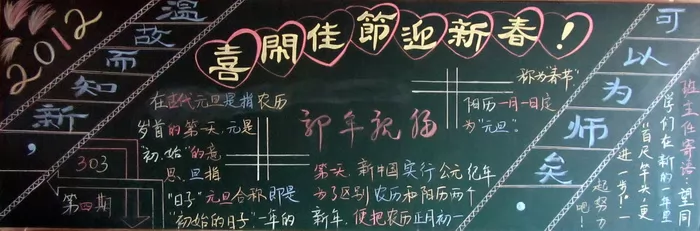 2012
温故而知新，
303
第四期
喜閙佳節迎新春！
在古代元旦是指农历
岁首的第一天.元是
"初、始"的意
思、旦指
"日子"元旦合称即是
"初始的日子"一年的
新年祝福
第一天. 新中国实行公元纪年
为了区别农历和阳历两个
新年, 便把农历正月初一
称为"春节"
阳历一月一日定
为"元旦".
可以为师矣
班主任寄语:望同
学们在新的一年里
"百尺竿头,更
进一步!"一
起努力
吧!